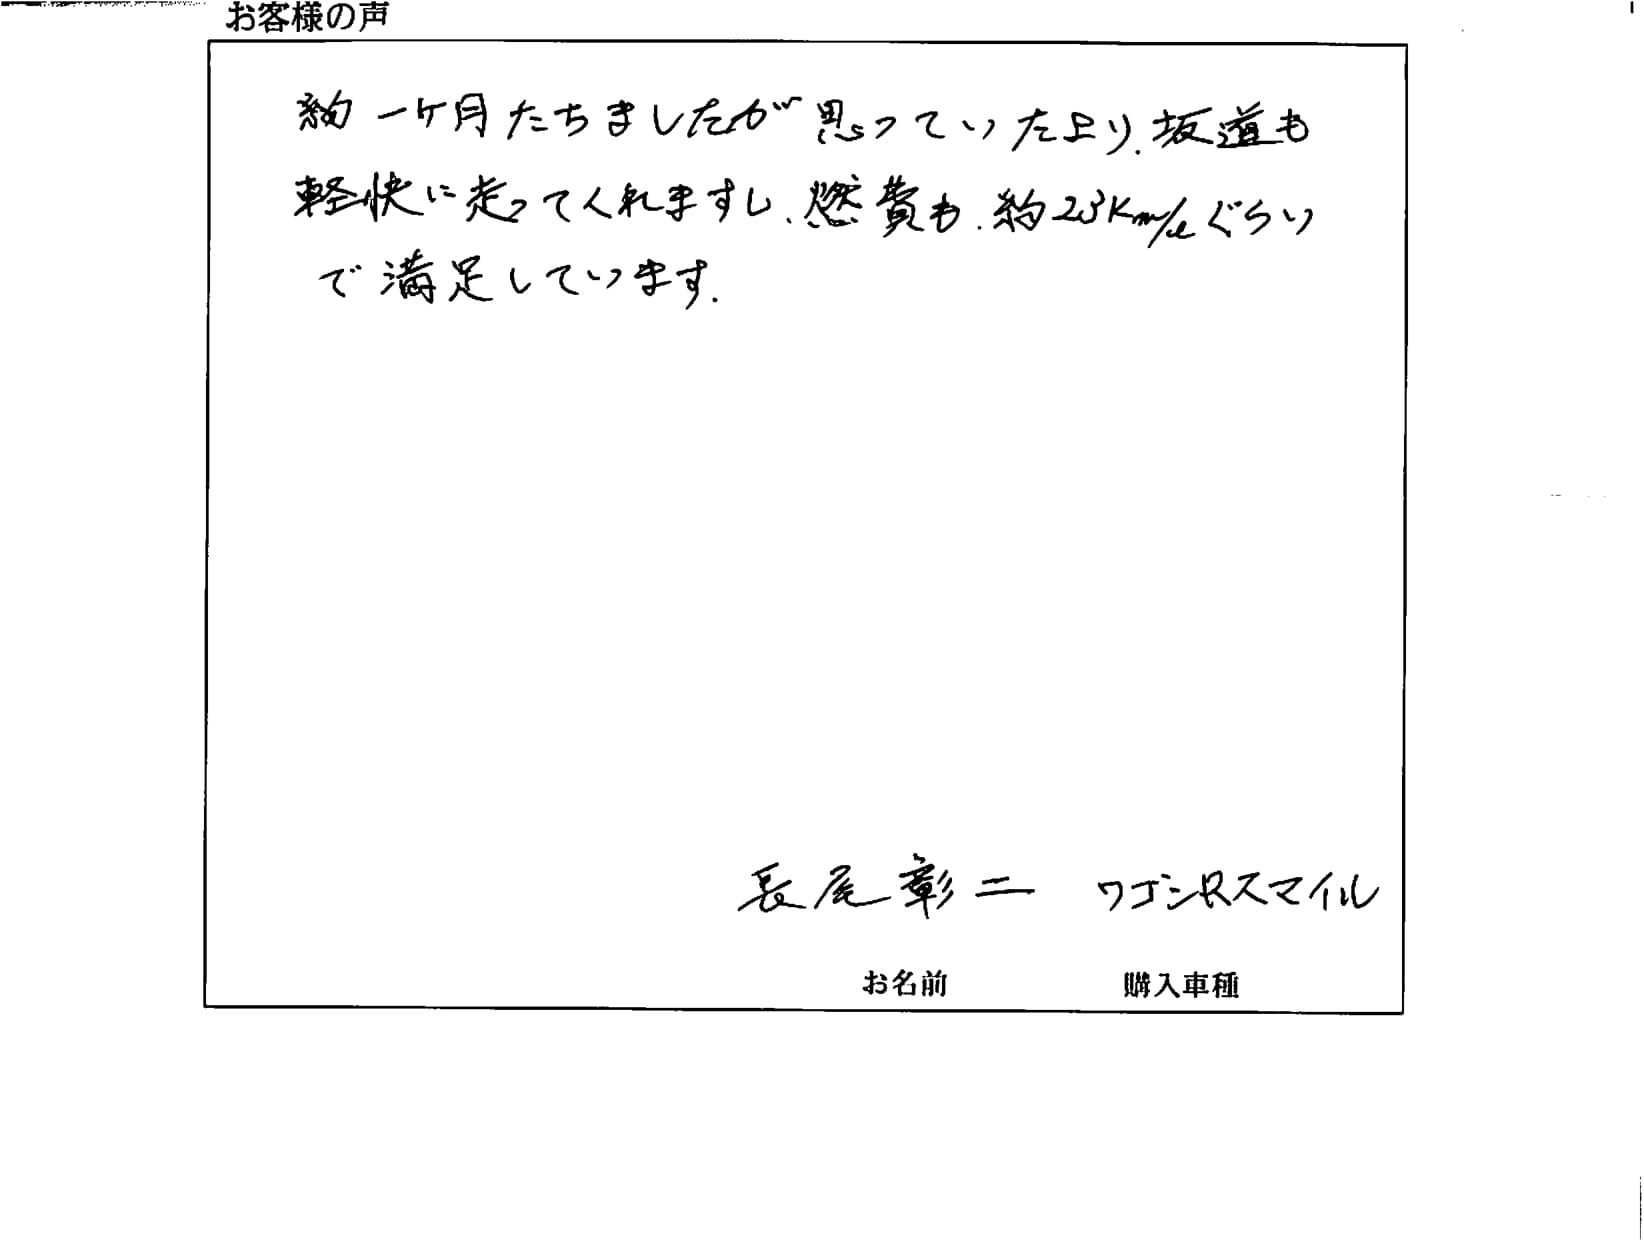 お客様の声
約一ケ月たちましたが思っていたより、坂道も
軽快に走ってくれますし、燃費も、約23Km/ℓぐらい
で満足しています.
長尾彰二 ワゴンRスマイル
お名前 購入車種